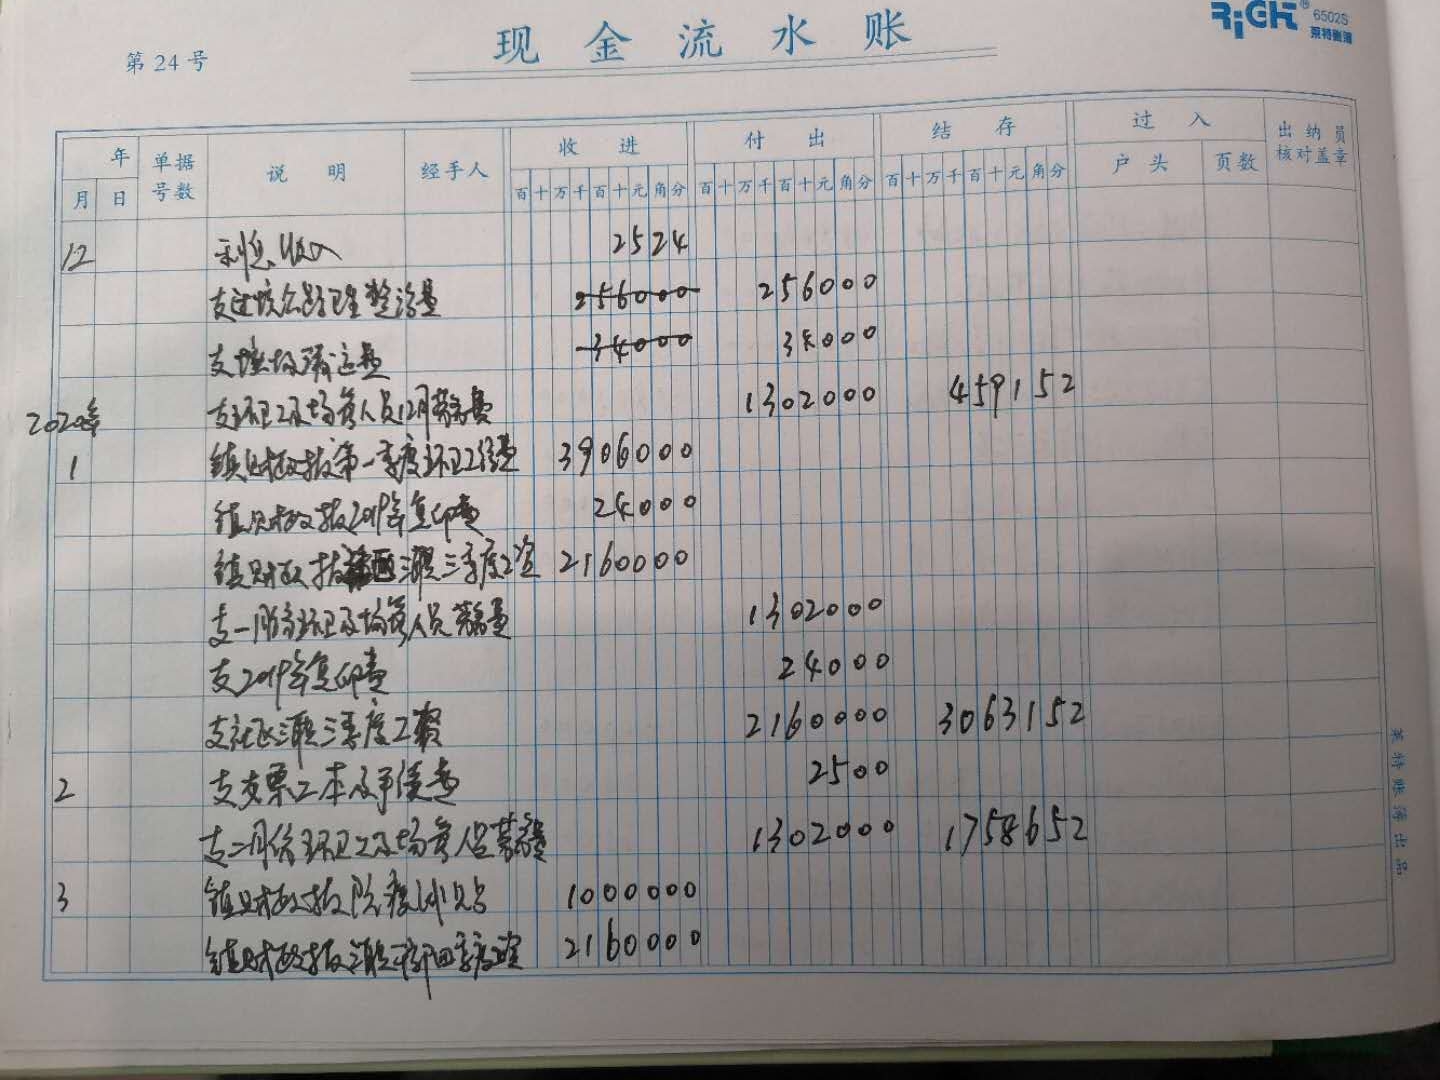 RiGHT® 6502S
莱特账簿
第 24 号
现金流水账
年 单据号数 说明 经手人 收进 付出 结存 过入 出纳员核对盖章
月 日 百十万千百十元角分 百十万千百十元角分 百十万千百十元角分 户头 页数
12 利息收入 2524
支边坡公路卫生整治费 256000 256000
支垃圾清运费 34000 34000
2020年 支环卫工及场务人员12月劳务费 1302000 459152
1 镇财政拨第一季度环卫工经费 3906000
镇财政拨2019年复印费 24000
镇财政拨 三联三季度工资 2160000
支一月份环卫及场务人员劳务费 1302000
支2019年复印费 24000
支社区三联三季度工资 2160000 3063152
2 支支票工本及手续费 2500
支二月份环卫工及场务人员劳务费 1302000 1758652
3 镇财政拨防疫补贴 1000000
镇财政拨三联干部四季度工资 2160000
莱特账簿出品